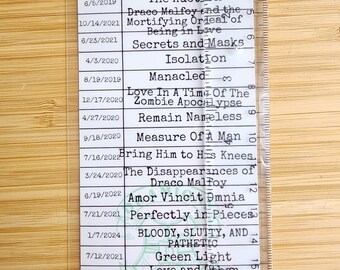 6/5/2019 The Auction
10/14/2021 Draco Malfoy and the
Mortifying Ordeal of
Being in Love
6/23/2021 Secrets and Masks
4/3/2020 Isolation
8/19/2019 Manacled
12/17/2020 Love In A Time Of The
Zombie Apocalypse
4/27/2020 Remain Nameless
9/18/2020 Measure Of A Man
7/16/2022 Bring Him to His Knees
3/24/2024 The Disappearances of
Draco Malfoy
6/19/2022 Amor Vincit Omnia
7/21/2021 Perfectly in Pieces
1/7/2024 BLOODY, SLUTTY, AND
PATHETIC
7/12/2021 Green Light
Love and
5
6
7
8
9
10
11
12
13
14
15
3
4
5